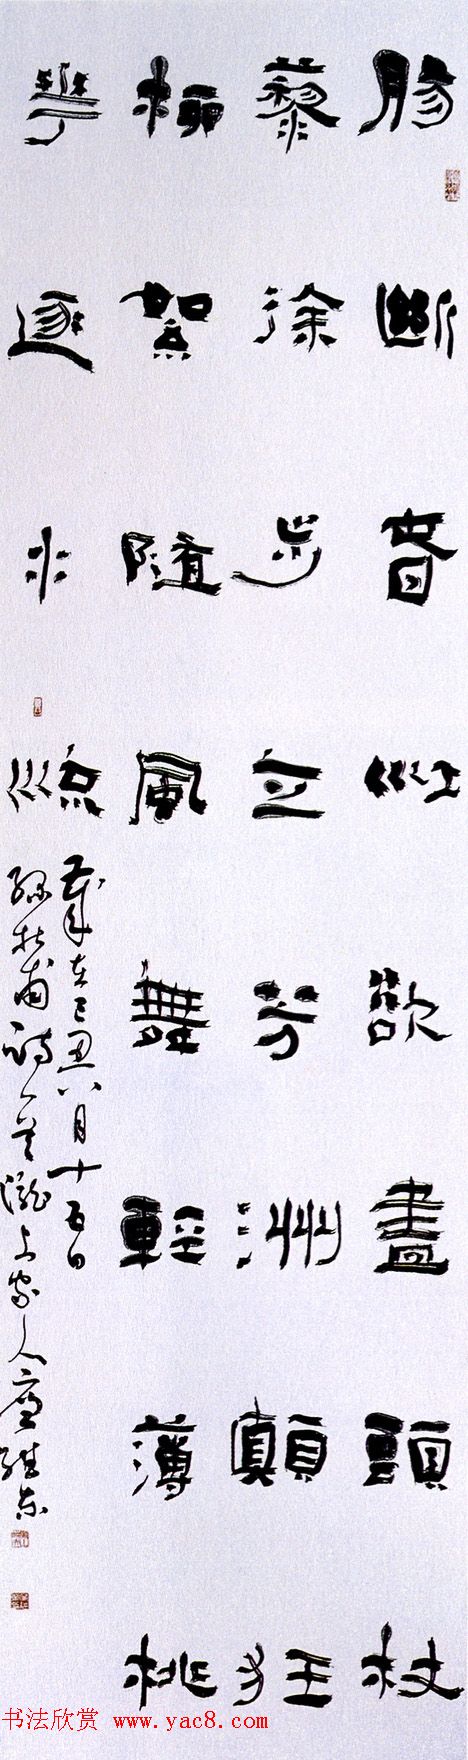 腸斷春江欲盡頭杖
藜徐步立芳洲顛狂
柳絮隨風舞輕薄桃
華逐水流
歲在己丑八月十五日
杜甫詩一首
书法欣赏 www.yac8.com